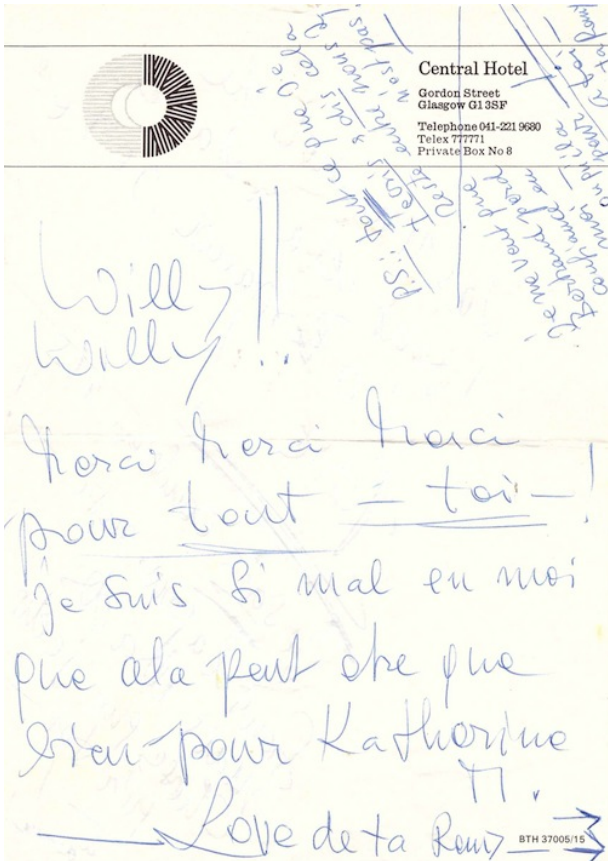 Central Hotel
Gordon Street
Glasgow G1 3SF
Telephone 041-221 9680
Telex 777771
Private Box No 8
P.S!: tout ce que je
t'écris & dis cela
reste entre nous 2
n'est pas!
Je ne veut pas que
perd
confiance en
moi
à toi
Willy!!
Willy!!
Merci Merci Merci
pour tout = toi - !
Je suis si mal en moi
que cela peut etre que
bien pour Katharina
M.
Love de ta Romy
BTH 37005/15